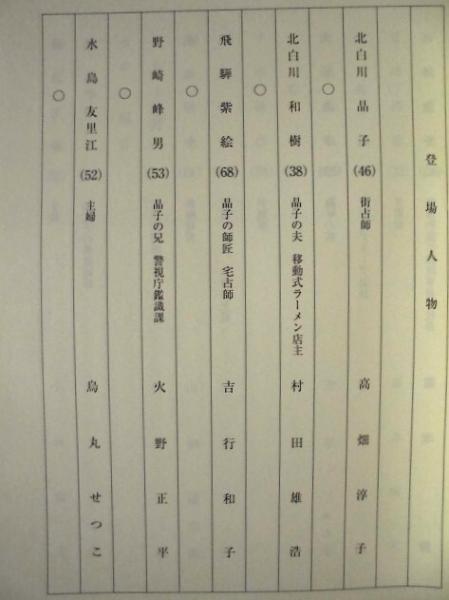 登場人物
北白川晶子(46) 街占師 高畑淳子
○
北白川和樹(38) 晶子の夫 移動式ラーメン店主 村田雄浩
○
飛騨紫絵(68) 晶子の師匠 宅占師 吉行和子
○
野崎峰男(53) 晶子の兄 警視庁鑑識課 火野正平
○
水島友里江(52) 主婦 烏丸せつこ
○